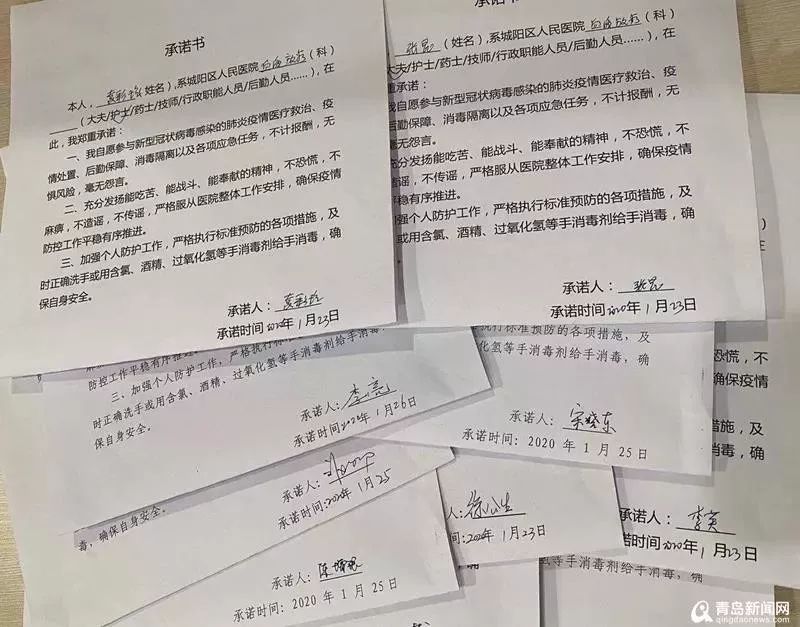 承诺书
本人，姓名），系城阳区人民医院（科）
（大夫/护士/药士/技师/行政职能人员/后勤人员……），在
此，我郑重承诺：
一、我自愿参与新型冠状病毒感染的肺炎疫情医疗救治、疫
情处置、后勤保障、消毒隔离以及各项应急任务，不计报酬，无
惧风险，毫无怨言。
二、充分发扬能吃苦、能战斗、能奉献的精神，不恐慌，不
麻痹，不造谣，不传谣，严格服从医院整体工作安排，确保疫情
防控工作平稳有序推进。
三、加强个人防护工作，严格执行标准预防的各项措施，及
时正确洗手或用含氯、酒精、过氧化氢等手消毒剂给手消毒，确
保自身安全。
承诺人：
承诺时间2020年1月23日
承诺书
张昆（姓名），系城阳区人民医院（科）
大夫/护士/药士/技师/行政职能人员/后勤人员……），在
重承诺：
我自愿参与新型冠状病毒感染的肺炎疫情医疗救治、疫
后勤保障、消毒隔离以及各项应急任务，不计报酬，无
毫无怨言。
充分发扬能吃苦、能战斗、能奉献的精神，不恐慌，不
造谣，不传谣，严格服从医院整体工作安排，确保疫情
平稳有序推进。
加强个人防护工作，严格执行标准预防的各项措施，及
或用含氯、酒精、过氧化氢等手消毒剂给手消毒，确
承诺人：张昆
承诺时间2020年1月23日
防控工作平稳有序推进
三、加强个人防护工作，严格执行标
时正确洗手或用含氯、酒精、过氧化氢等手消毒剂给手消毒，
保自身安全。
承诺人：李亮
承诺时间2020年1月26日
执行标准预防的各项措施，及
氢等手消毒剂给手消毒，确
承诺人：宋晓东
承诺时间：2020年1月25日
不恐慌，不
确保疫情
措施，及
毒，确
承诺人：李英
承诺时间2020年1月23日
毒，确保自身安全。
承诺人：
承诺时间：2020年1月25
人：徐公生
2020年1月23日
承诺人：
承诺时间：2020年1月25日
氢等手消毒剂给手消毒，确
青岛新闻网
qingdaonews.com